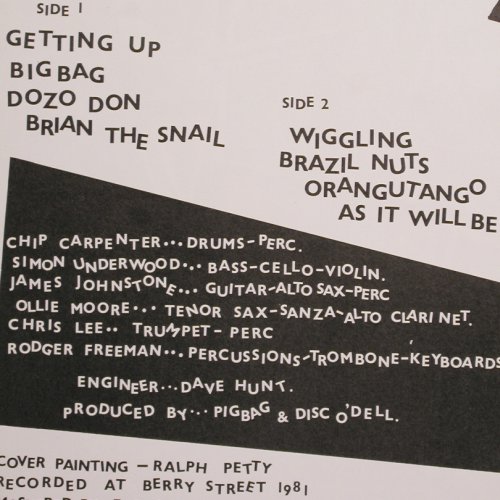 SIDE 1
GETTING UP
BIG BAG
DOZO DON
BRIAN THE SNAIL
SIDE 2
WIGGLING
BRAZIL NUTS
ORANGUTANGO
AS IT WILL BE
CHIP CARPENTER... DRUMS-PERC.
SIMON UNDERWOOD... BASS-CELLO-VIOLIN.
JAMES JOHNSTONE... GUITAR-ALTO SAX-PERC
OLLIE MOORE... TENOR SAX-SANZA-ALTO CLARINET.
CHRIS LEE.. TRUMPET-PERC
RODGER FREEMAN... PERCUSSIONS-TROMBONE-KEYBOARDS
ENGINEER... DAVE HUNT.
PRODUCED BY... PIGBAG & DISC O'DELL.
COVER PAINTING - RALPH PETTY
RECORDED AT BERRY STREET 1981